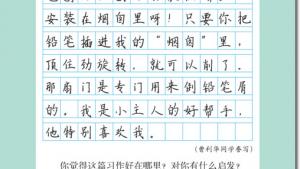 安装在烟囱里呀！只要你把
铅笔插进我的“烟囱”里，
顶住劲旋转，就可以削了。
那扇门是专门用来倒铅笔屑
的。我是小主人的好帮手，
他特别喜欢我。
（曹利华同学誊写）
你觉得这篇习作好在哪里？对你有什么启发？